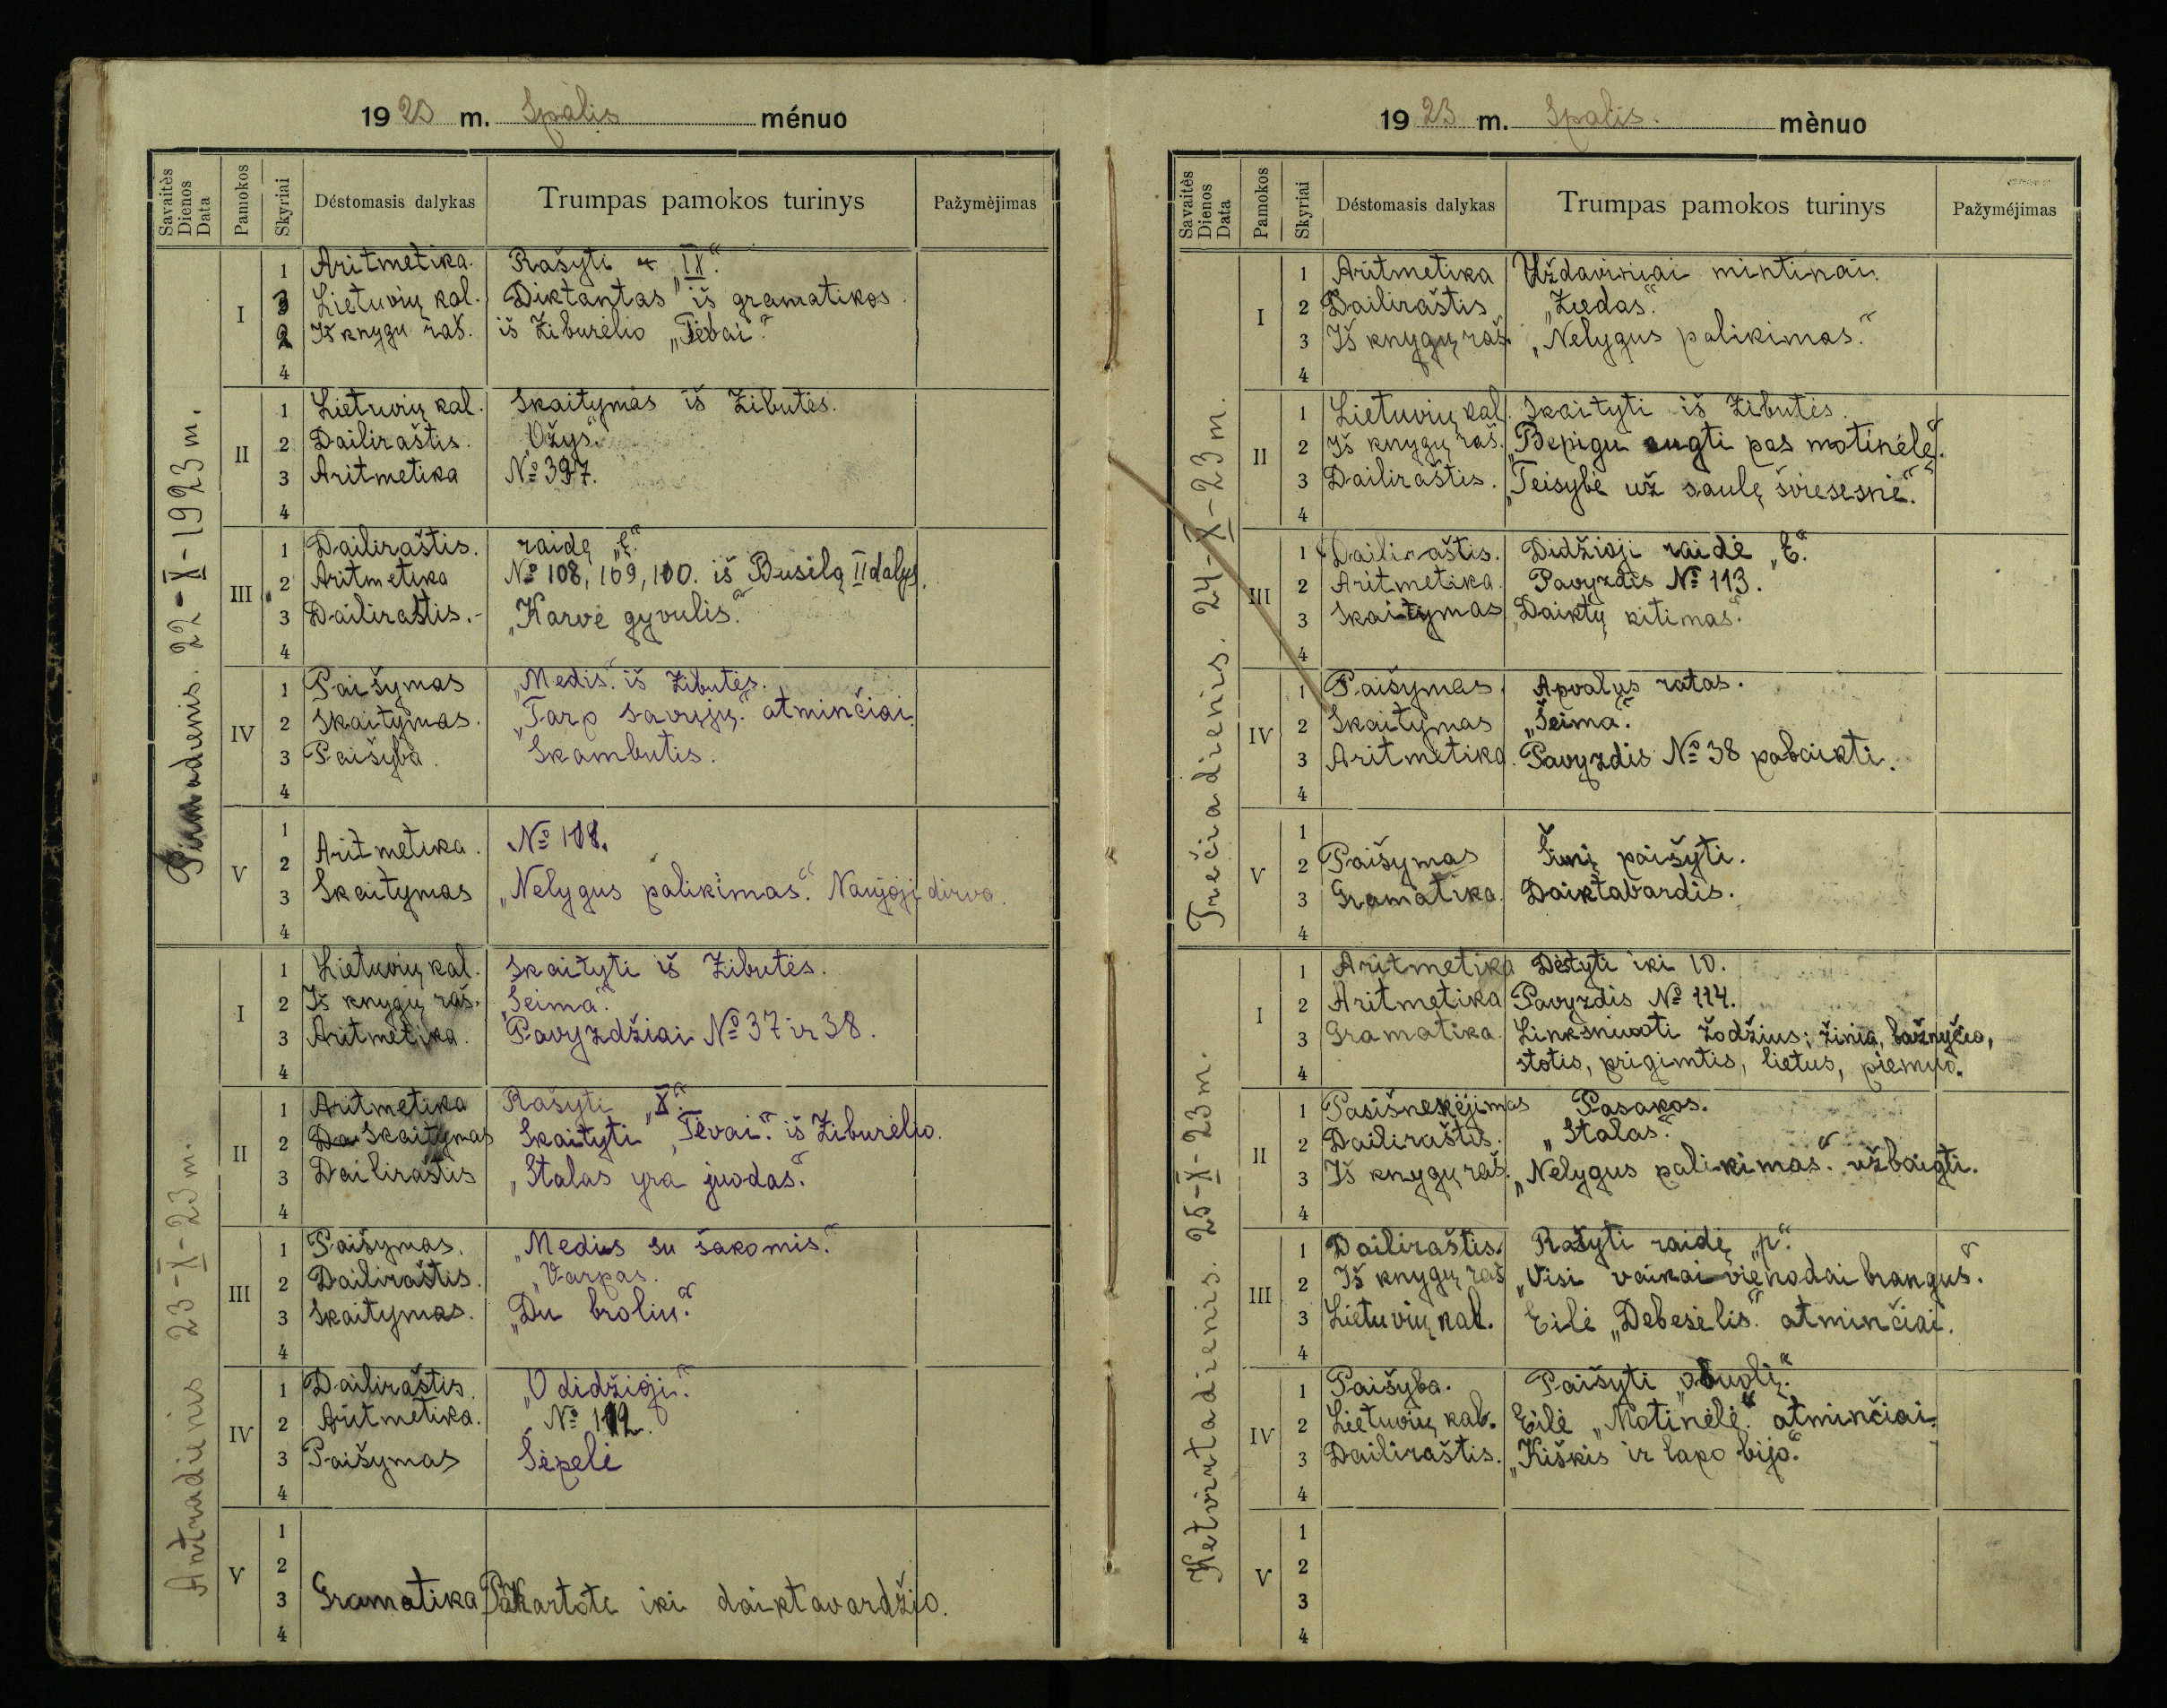 1923 m. Spalis ménuo
Savaitės Dienos Data
Pamokos
Skyriai
Déstomasis dalykas
Trumpas pamokos turinys
Pažymėjimas
Pirmadienis. 22-X-1923 m.
I
1 Aritmetika. Rašyti „IX“.
3 Lietuvių kal. Diktantas iš gramatikos.
2 Iš knygų raš. iš Žiburėlio „Tėvai“.
4
II
1 Lietuvių kal. Skaitymas iš Žibutės.
2 Dailiraštis. „Ožys“.
3 Aritmetika № 397.
4
III
1 Dailiraštis. raidę „ę“.
2 Aritmetika № 108, 109, 110. iš Busilą II dalys.
3 Dailiraštis. „Karvė gyvulis“.
4
IV
1 Paišymas „Medis“. iš Žibutės.
2 Skaitymas. „Tarp savųjų“. atminčiai.
3 Paišyba. Skambutis.
4
V
1
2 Aritmetika. № 108.
3 Skaitymas „Nelygus palikimas“. Naujoji dirva.
4
Antradienis 23-X-23 m.
I
1 Lietuvių kal. Skaityti iš Žibutės.
2 Iš knygų raš. „Šeima“.
3 Aritmetika. Pavyzdžiai № 37 ir 38.
4
II
1 Aritmetika Rašyti „X“.
2 Skaitymas Skaityti „Tėvai“. iš Žiburėlio.
3 Dailiraštis „Stalas yra juodas“.
4
III
1 Paišymas. „Medis su šakomis“.
2 Dailiraštis. „Varpas.
3 Skaitymas. „Du broliu“.
4
IV
1 Dailiraštis. „O didžioji“.
2 Aritmetika. № 112.
3 Paišymas Šėpelė
4
V
1
2
3 Gramatika Pakartote iki daiktavardžio.
4
1923 m. Spalis. mėnuo
Savaitės Dienos Data
Pamokos
Skyriai
Déstomasis dalykas
Trumpas pamokos turinys
Pažyméjimas
Trečiadienis. 24-X-23 m.
I
1 Aritmetika Uždaviniai mintinai.
2 Dailiraštis „Žiedas“.
3 Iš knygų raš. „Nelygus palikimas“.
4
II
1 Lietuvių kal. Skaityti iš Žibutės.
2 Iš knygų raš. „Bepigu augti pas motinėlę“.
3 Dailiraštis. „Teisybė už saulę šviesesnė“.
4
III
1 Dailiraštis. Didžioji raidė „E“.
2 Aritmetika. Pavyzdis № 113.
3 Skaitymas „Daiktų kitimas“.
4
IV
1 Paišymas. Apvalus ratas.
2 Skaitymas „Šeima“.
3 Aritmetika. Pavyzdis № 38 pabaikti.
4
V
1
2 Paišymas Šunį paišyti.
3 Gramatika. Daiktavardis.
4
Ketvirtadienis. 25-X-23 m.
I
1 Aritmetika Dėstyti iki 10.
2 Aritmetika Pavyzdis № 114.
3 Gramatika. Linksniuoti žodžius: žinia, bažnyčia,
4 stotis, prigimtis, lietus, piemuo.
II
1 Pasišnekėjimas Pasakos.
2 Dailiraštis. „Stalas“.
3 Iš knygų raš. „Nelygus palikimas“. užbaigti.
4
III
1 Dailiraštis. Rašyti raidę „p“.
2 Iš knygų raš „Visi vaikai vienodai brangus“.
3 Lietuvių kal. Eilė „Debesėlis“. atminčiai.
4
IV
1 Paišyba. Paišyti „obuolį“.
2 Lietuvių kal. Eilė „Motinėlė“. atminčiai.
3 Dailiraštis. „Kiškis ir lapo bijo“.
4
V
1
2
3
4